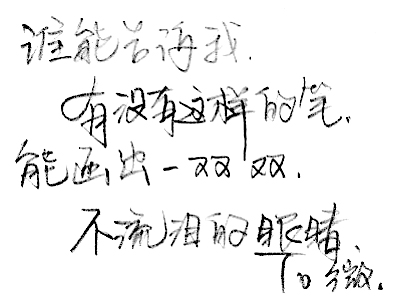 谁能告诉我.
有没有这样的笔.
能画出一双双.
不流泪的眼睛.
To 微.